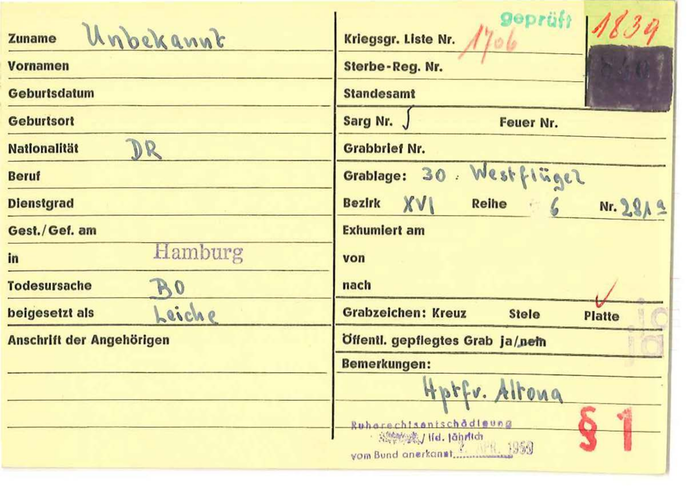 Zuname Unbekannt
Vornamen
Geburtsdatum
Geburtsort
Nationalität DR
Beruf
Dienstgrad
Gest./Gef. am
in Hamburg
Todesursache BO
beigesetzt als Leiche
Anschrift der Angehörigen
geprüft
1839
Kriegsgr. Liste Nr. 1706
Sterbe-Reg. Nr.
Standesamt
Sarg Nr. 5 Feuer Nr.
Grabbrief Nr.
Grablage: 30. Westflügel
Bezirk XVI Reihe 6 Nr. 281a
Exhumiert am
von
nach
Grabzeichen: Kreuz Stele Platte
Öffentl. gepflegtes Grab ja/nein
ja
ja
Bemerkungen:
Hptfr. Altona
Ruherechtsentschädigung
/ lfd. jährlich
vom Bund anerkannt APR.
§ 1